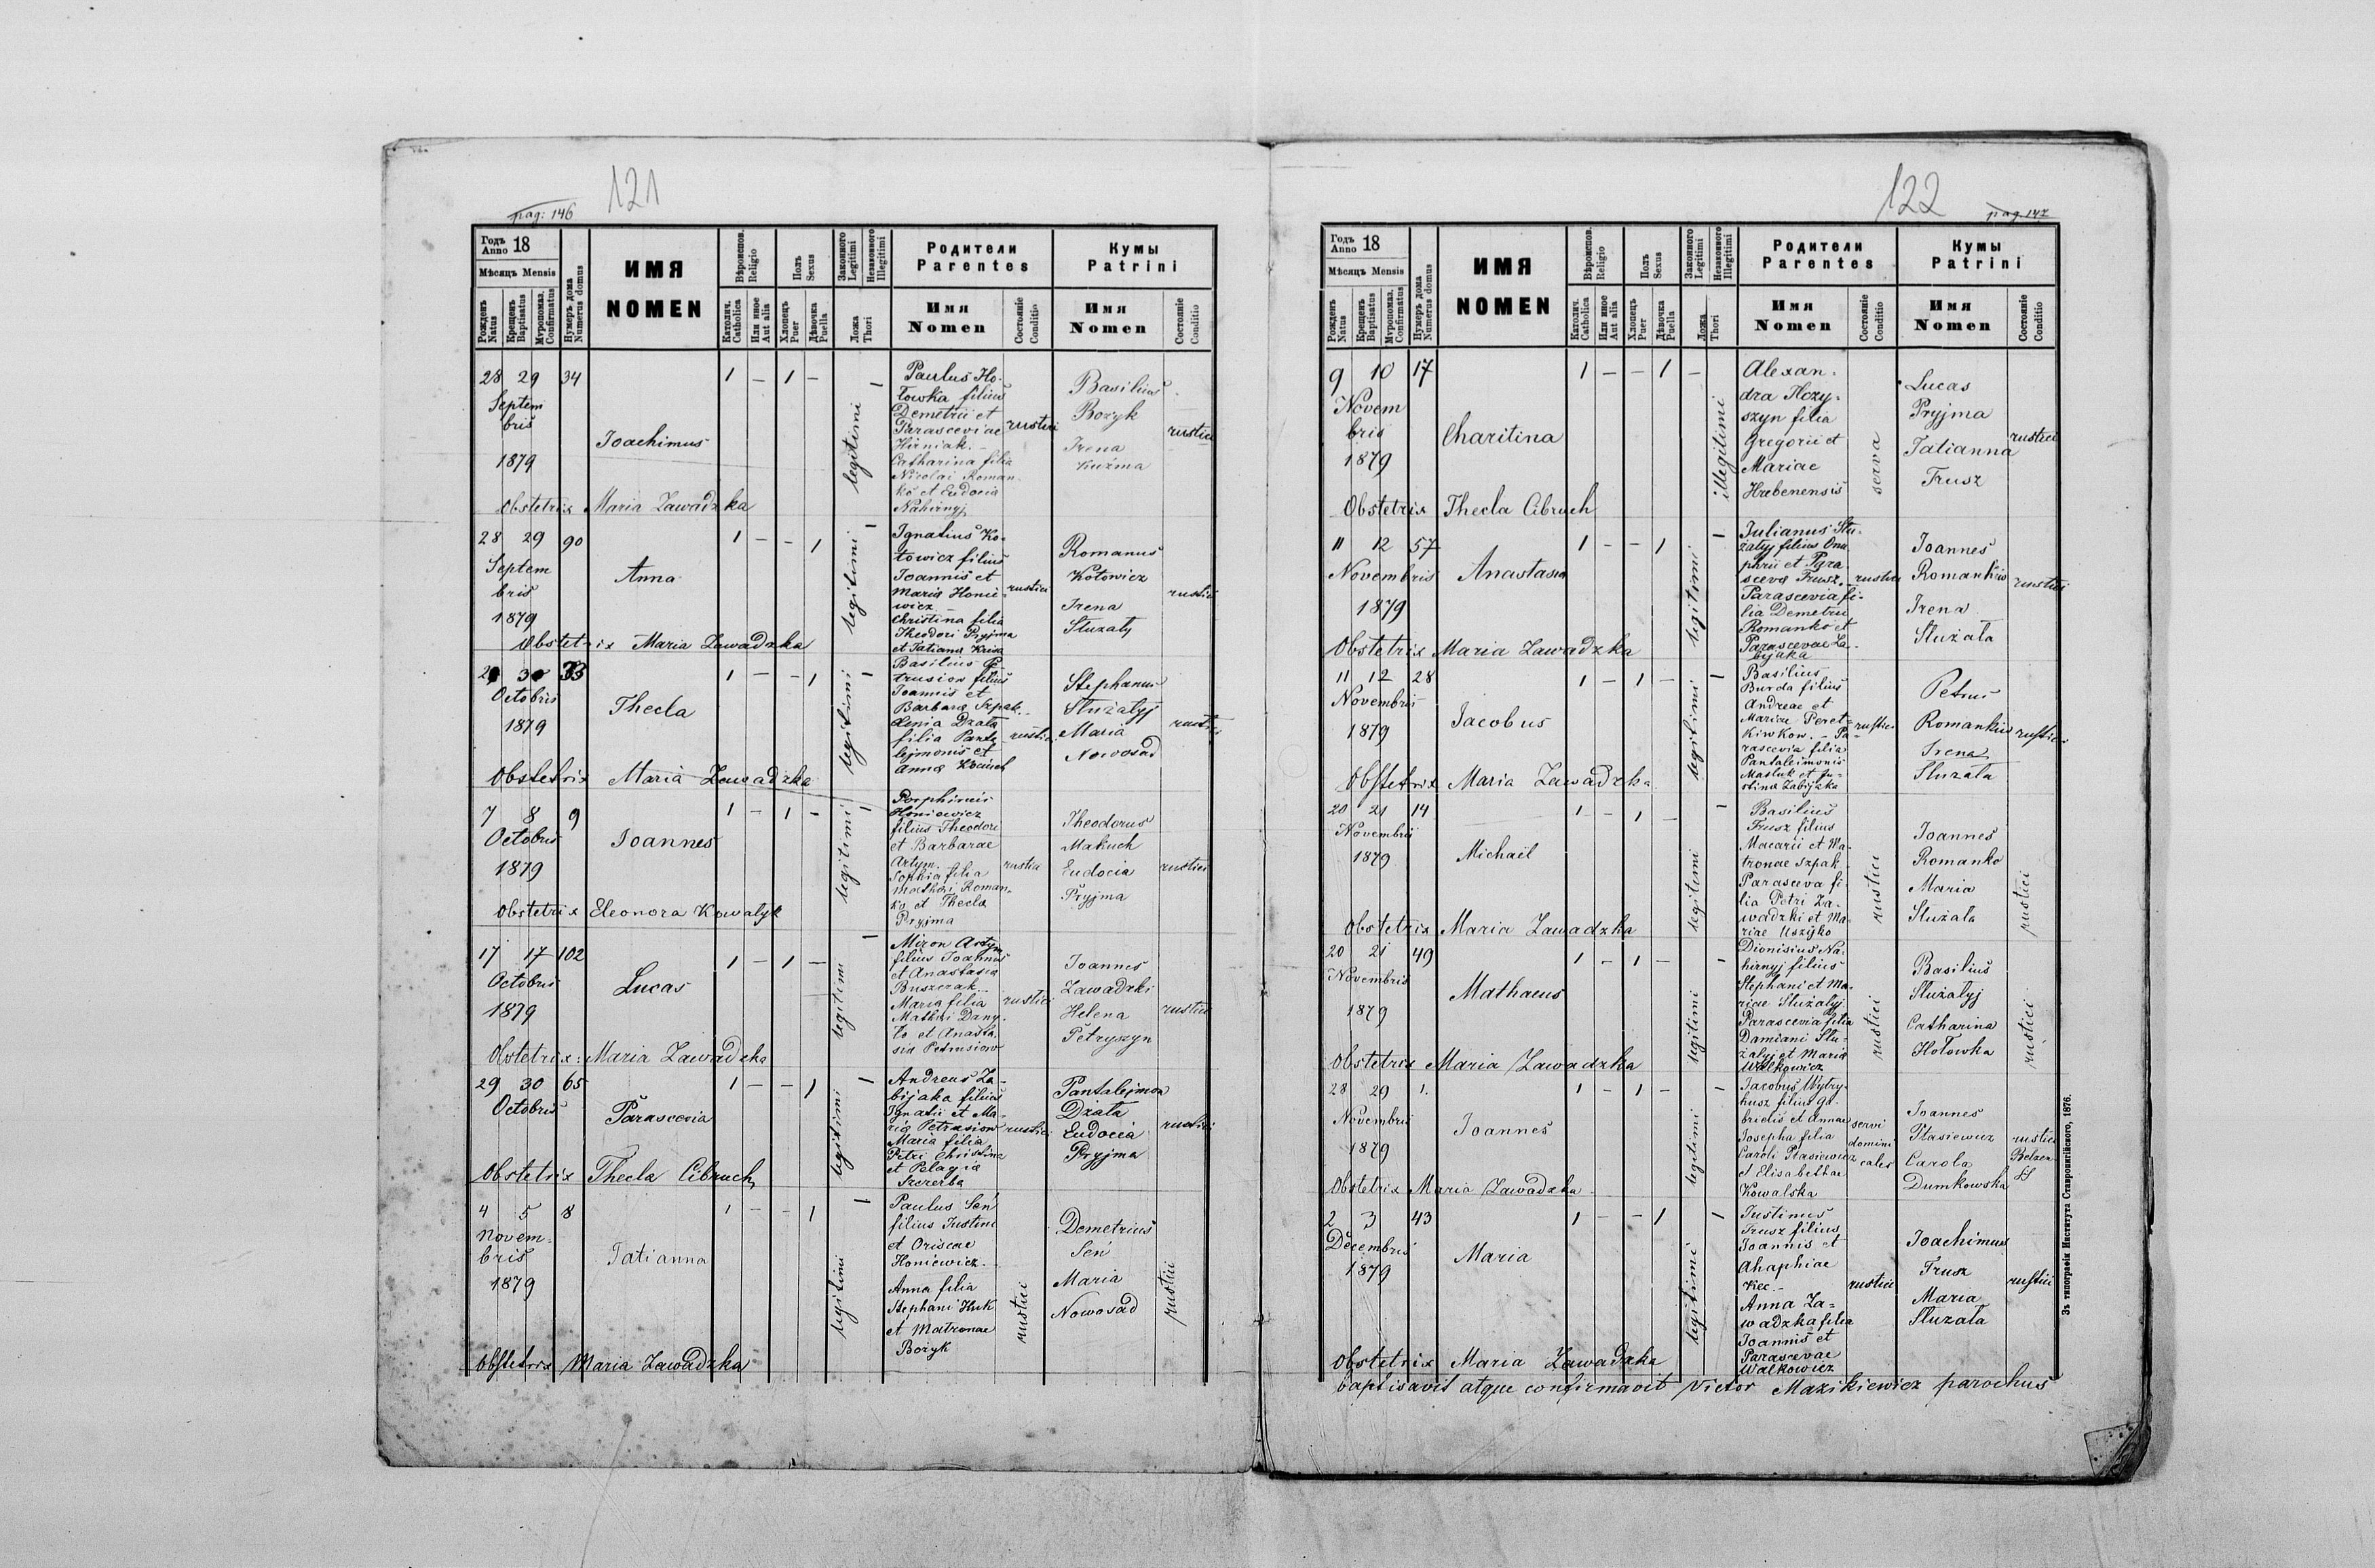 121
pag: 146
Годъ Anno 18
Мѣсяцъ Mensis
Рожденъ Natus
Крещенъ Baptisatus
Мѵропомаз. Confirmatus
Нумеръ дома Numerus domus
ИМЯ
NOMEN
Вѣроисповѣд. Religio
Католич. Catholica
Или иное Aut alia
Полъ Sexus
Хлопецъ Puer
Дѣвочка Puella
Законного Legitimi
Незаконного Illegitimi
Ложа Thori
Родители
Parentes
Имя
Nomen
Состояніе Conditio
Кумы
Patrini
Имя
Nomen
Состояніе Conditio
28 29 34
Septem
bris
1879
Joachimus
1 – 1 –
legitimi 1
Paulus Ho-
łowka filius
Demetrii et
Parasceviae
Hirniak.
Catharina filia
Nicolai Roman-
ko et Eudocia
Nahirnyj
rustici
Basilius
Bożyk
Irena
Kuźma
rustici
Obstetrix Maria Zawadzka
28 29 90
Septem
bris
1879
Anna
1 – – 1
legitimi 1
Ignatius Ko-
towicz filius
Joannis et
Maria Honie-
wicz
Christina filia
Theodori Pryjma
et Tatiana
rustici
Romanus
Kotowicz
Irena
Służały
rustici
Obstetrix Maria Zawadzka
33
Octobris
1879
Thecla
1 – – 1
legitimi 1
Basilius
trusiow filius
Joannis et
Barbara Szpak.
Xenia Dzała
filia Panta
lejmonis et
Anna
rustici
Stephanus
Służałyj
Maria
Nowosad
rustici
Obstetrix Maria Zawadzka
7 8 9
Octobris
1879
Joannes
1 – 1 –
legitimi 1
Porphirius
Honiewicz
filius Theodori
et Barbarae
Artym.
Sophia filia
Mathei Roman-
ko et Thecla
Pryjma
rustici
Theodorus
Makuch
Eudocia
Pryjma
rustici
Obstetrix Eleonora Kowalyk
17 17 102
Octobris
1879
Lucas
1 – 1 –
legitimi 1
Miron Artym
filius Joannis
et Anastasia
Buszczak.
Maria filia
Mathei Dany-
ło et Anasta-
sia Petrusiow
rustici
Joannes
Zawadzki
Helena
Petryszyn
rustici
Obstetrix: Maria Zawadzka
29 30 65
Octobris
Parascevia
1 – – 1
legitimi 1
Andreas Za-
bijaka filius
Ignatii et Ma-
ria Petrusiow
Maria filia
Petri Christina
et Pelagia
Szczerba
rustici
Pantalejmon
Dżała
Eudocia
Pryjma
rustici
Obstetrix Thecla Cibruch
4 5 8
Novem-
bris
1879
Tatianna
1 – – 1
legitimi 1
Paulus Seń
filius Justini
et Oriscae
Honiewicz.
Anna filia
Stephani Huk
et Matronae
Bożyk
rustici
Demetrius
Seń
Maria
Nowosad
rustici
Obstetrix Maria Zawadzka
122
pag. 147
Годъ Anno 18
Мѣсяцъ Mensis
Рожденъ Natus
Крещенъ Baptisatus
Мѵропомаз. Confirmatus
Нумеръ дома Numerus domus
ИМЯ
NOMEN
Вѣроисповѣд. Religio
Католич. Catholica
Или иное Aut alia
Полъ Sexus
Хлопецъ Puer
Дѣвочка Puella
Законного Legitimi
Незаконного Illegitimi
Ложа Thori
Родители
Parentes
Имя
Nomen
Состояніе Conditio
Кумы
Patrini
Имя
Nomen
Состояніе Conditio
9 10 17
Novem
bris
1879
Charitina
1 – – 1 –
illegitimi
Alexan-
dra Hozy-
szyn filia
Gregorii et
Mariae
Hrebenensis
serva
Lucas
Pryjma
Tatianna
Frusz
rustici
Obstetrix Thecla Cibruch
11 12 57
Novembris
1879
Anastasia
1 – – 1
legitimi 1
Julianus Słu-
żałyj filius Onu
phrii et Para
sceva Frusz.
Parascevia fi-
lia Demetrii
Romanko et
Parascevae Za-
bijaka
rustici
Joannes
Romankiw
Irena
Służała
rustici
Obstetrix Maria Zawadzka
11 12 28
Novembris
1879
Jacobus
1 – 1 –
legitimi 1
Basilius
Burda filius
Andreae et
Mariae Peret-
kiwkow. – Pa-
rascevia filia
Pantaleimonis
Masluk et Ju-
stina Zabijaka
rustici
Petrus
Romankiw
Irena
Służała
rustici
Obstetrix Maria Zawadzka
20 21 14
Novembris
1879
Michaël
1 – 1 –
legitimi 1
Basilius
Frusz filius
Macarii et Ma-
tronae Szpak
Parasceva fi-
lia Petri Za-
wadzki et Ma-
riae Uszyjko
rustici
Joannes
Romanko
Maria
Służała
rustici
Obstetrix Maria Zawadzka
20 21 49
Novembris
1879
Mathaeus
1 – 1 –
legitimi 1
Dionisius Na-
hirnyj filius
Stephani et Ma-
riae Służałyj
Parascevia filia
Damiani Słu-
żałyj et Maria
Walkowicz
rustici
Basilius
Służałyj
Catharina
Hołowka
rustici
Obstetrix Maria Zawadzka
28 29 1.
Novembris
1879
Joannes
1 – 1 –
legitimi 1
Jacobus Wytry-
husz filius Ga-
brielis et Annae
Josepha filia
Caroli Ptasiewicz
et Elisabethae
Kowalska
servi
domini
cales
Joannes
Ptasiewicz
Carola
Dumkowska
rustici
Obstetrix Maria Zawadzka
2 3 43
Decembris
1879
Maria
1 – – 1
legitimi 1
Justinus
Frusz filius
Joannis et
Ahaphiae
Kec.–
Anna Za-
wadzka filia
Joannis et
Parascevae
Walkowicz
rustici
Joachimus
Frusz
Maria
Służała
rustici
Obstetrix Maria Zawadzka
baptisavit atque confirmavit Victor Mazikiewicz parochus
Зъ типографіи Института Ставропигійского, 1876.